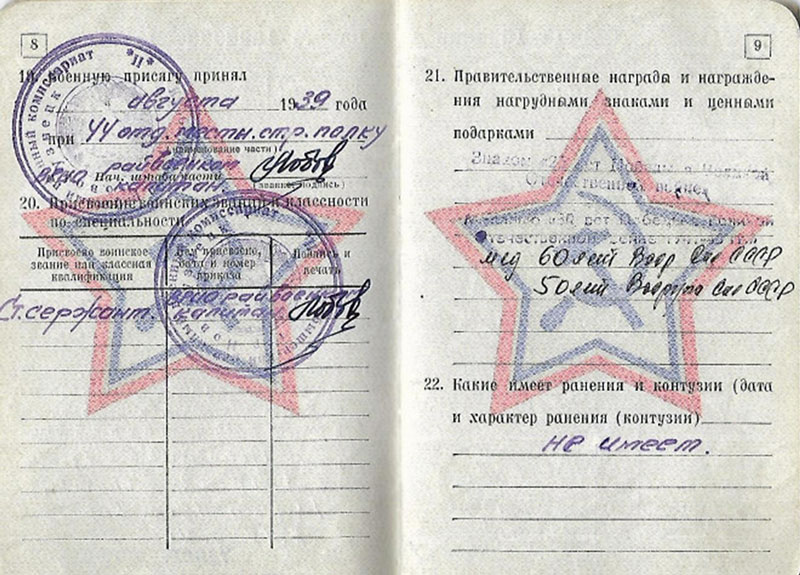 8
19. Военную присягу принял
августа 1939 года
при 44 отд. местн. стр. полку
(наименование части)
райвоенком
Нач. штаба части
капитан
(звание, подпись)
20. Присвоение воинских званий и классности
по специальности
Присвоено воинское
звание или классная
квалификация
Кем присвоено,
дата и номер
приказа
Подпись и
печать
Ст. сержант
райвоенком
капитан
военный комиссариат
9
21. Правительственные награды и награжде-
ния нагрудными знаками и ценными
подарками
Знаком «25 лет Победы в Великой
Отечественной войне»
«30 лет Победы в
Отечественной войне
мед 60 лет Воор Сил СССР
50 лет Вооруж Сил СССР
22. Какие имеет ранения и контузии (дата
и характер ранения (контузии)
не имеет.